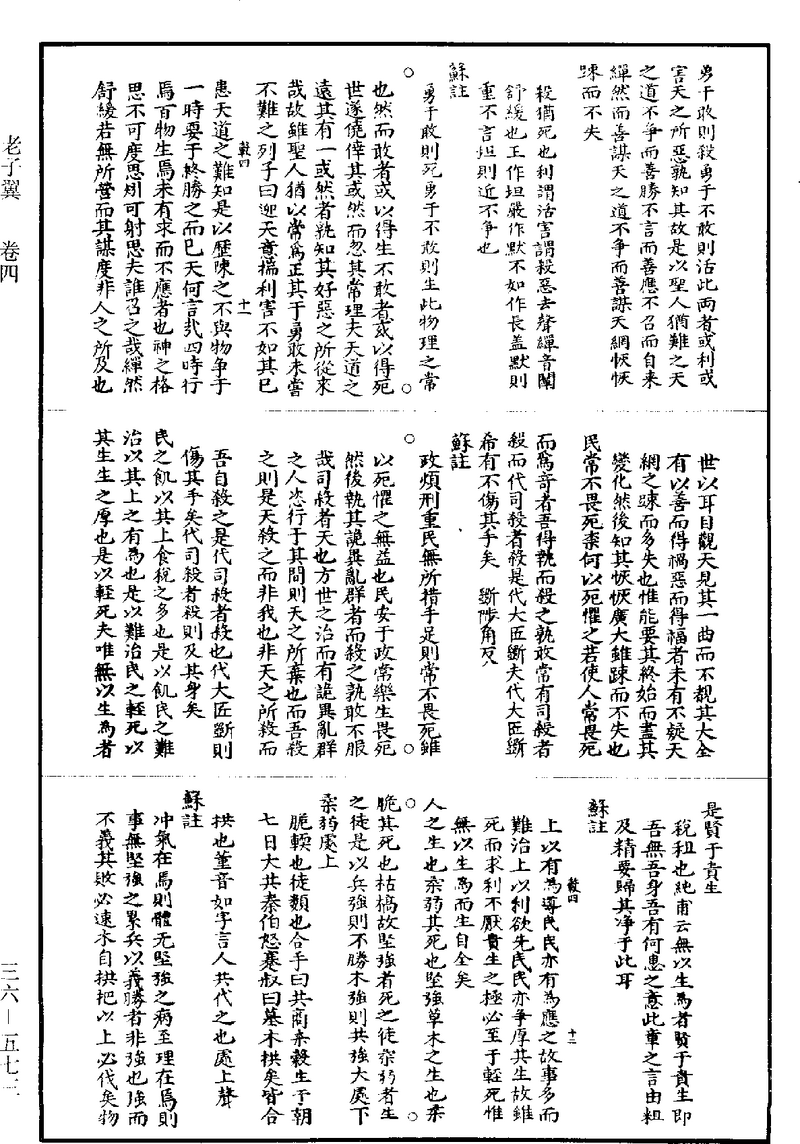 老子翼　卷四
三六—五七三
勇于敢則殺勇于不敢則活此兩者或利或
害天之所惡孰知其故是以聖人猶難之天
之道不爭而善勝不言而善應不召而自來
繟然而善謀天之道不爭而善謀天網恢恢
踈而不失
殺猶死也利謂活害謂殺惡去聲繟音闡
舒緩也王作坦嚴作默不如作長盖默則
重不言坦則近不爭也
蘇註
勇于敢則死勇于不敢則生此物理之常
也然而敢者或以得生不敢者或以得死
世遂僥倖其或然而忽其常理夫天道之
遠其有一或然者孰知其好惡之所從來
哉故雖聖人猶以常爲正其于勇敢未嘗
不難之列子曰迎天意揣利害不如其已
患天道之難知是以歷陳之不與物爭于
一時要于終勝之而已天何言哉四時行
焉百物生焉未有求而不應者也神之格
思不可度思矧可射思夫誰召之哉繟然
舒緩若無所營而其謀度非人之所及也
世以耳目觀天見其一曲而不覩其大全
有以善而得禍惡而得福者未有不疑天
網之踈而多失也惟能要其終始而盡其
變化然後知其恢恢廣大雖踈而不失也
民常不畏死柰何以死懼之若使人常畏死
而爲竒者吾得執而殺之孰敢常有司殺者
殺而代司殺者殺是代大匠斵夫代大匠斵
希有不傷其手矣　斵陟角反
蘇註
政煩刑重民無所措手足則常不畏死雖
以死懼之無益也民安于政常樂生畏死
然後執其詭異亂群者而殺之孰敢不服
哉司殺者天也方世之治而有詭異亂群
之人恣行于其間則天之所棄也而吾殺
之則是天殺之而非我也非天之所殺而
吾自殺之是代司殺者殺也代大匠斵則
傷其手矣代司殺者殺則及其身矣
民之飢以其上食稅之多也是以飢民之難
治以其上之有為也是以難治民之輕死以
其生生之厚也是以輕死夫唯無以生為者
是賢于貴生
稅租也純甫云無以生為者賢于貴生即
吾無吾身吾有何患之意此章之言由粗
及精要歸其淨于此耳
蘇註
上以有為導民民亦有為應之故事多而
難治上以利欲先民民亦爭厚其生故雖
死而求利不厭貴生之極必至于輕死惟
無以生為而生自全矣
人之生也柔弱其死也堅強草木之生也柔
脆其死也枯槁故堅強者死之徒柔弱者生
之徒是以兵強則不勝木強則共強大處下
柔弱處上
脆輭也徒類也合手曰共商桑榖生于朝
七日大共秦伯怒蹇叔曰墓木拱矣皆合
拱也董音如字言人共伐之也處上聲
蘇註
冲氣在焉則體无堅強之病至理在焉則
事無堅強之累兵以義勝者非強也強而
不義其敗必速木自拱把以上必伐矣物